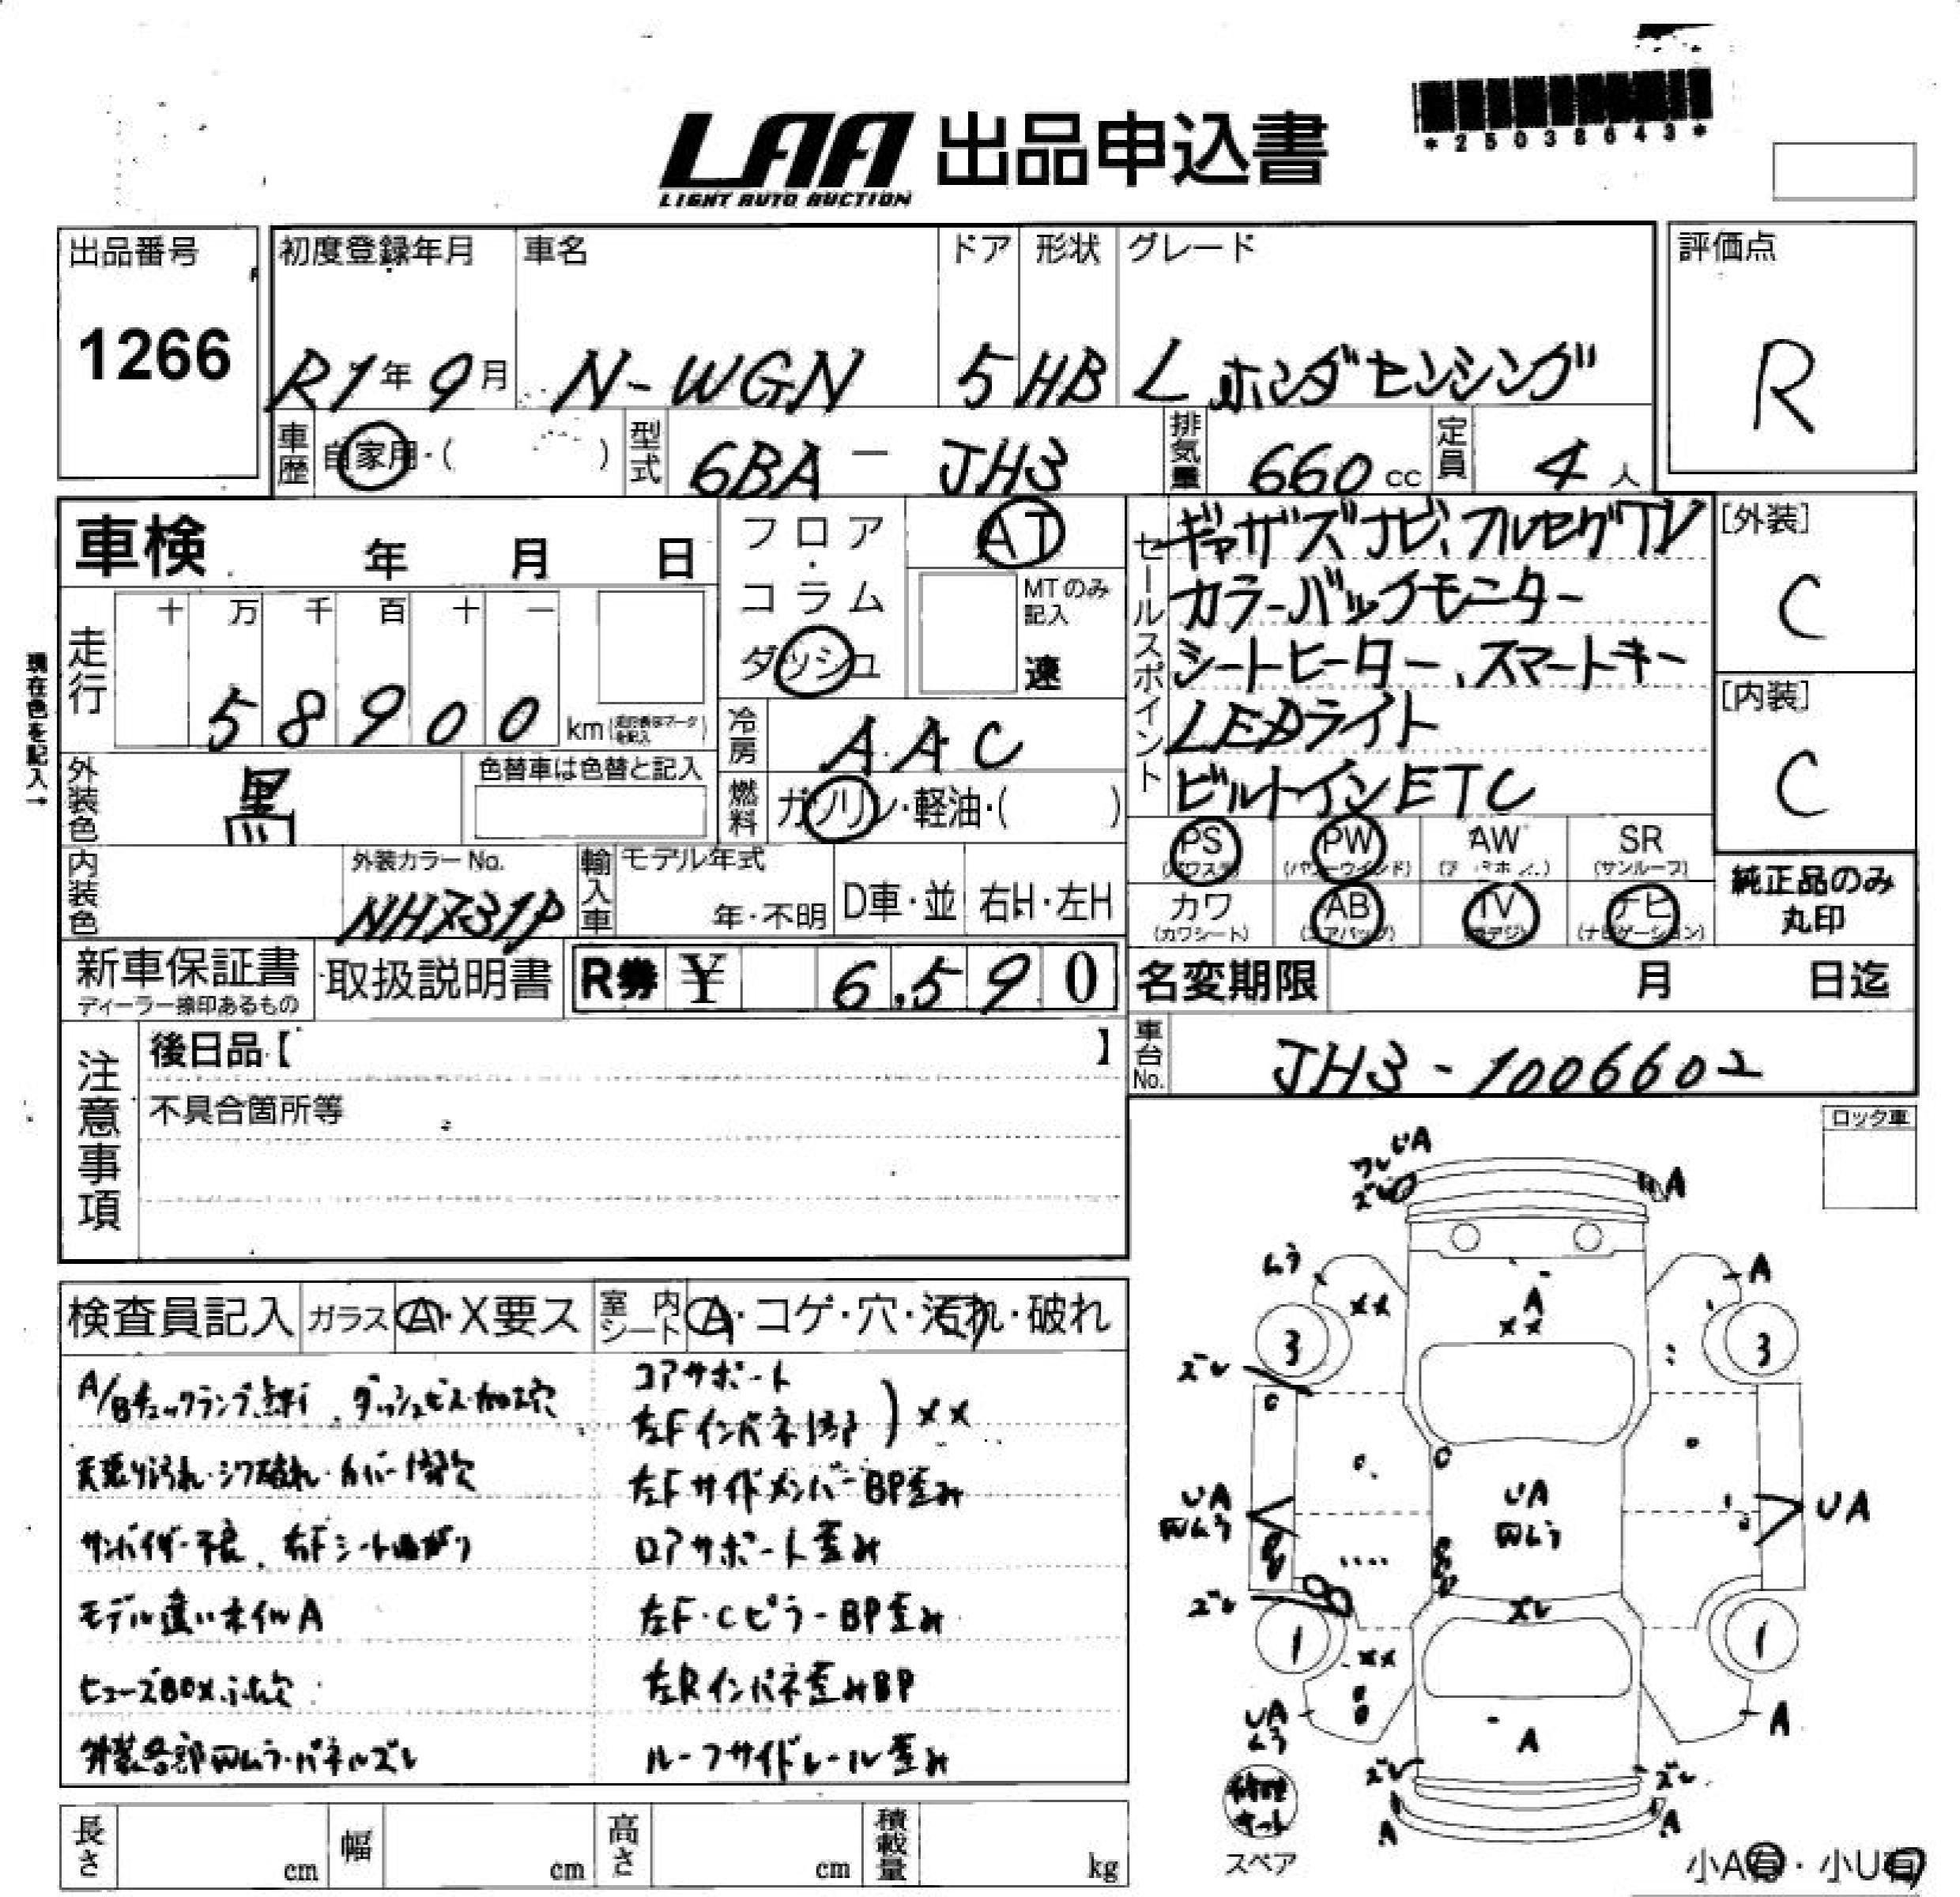 LAA 出品申込書
LIGHT AUTO AUCTION
*25038643*
出品番号
1266
初度登録年月
R1年9月
車名
N-WGN
ドア
5
形状
HB
グレード
L ホンダセンシング
評価点
R
車歴
自家用・( )
型式
6BA - JH3
排気量
660 cc
定員
4 人
車検 年 月 日
フロア・コラム
ダッシュ
AT
MTのみ記入
速
走行
十 万 千 百 十 一
5 8 9 0 0 km
現在色を記入→
冷房
AAC
燃料
ガソリン・軽油・( )
外装色
黒
色替車は色替と記入
内装色
外装カラーNo.
NH731P
輸入車
モデル年式
年・不明
D車・並
右H・左H
セールスポイント
ギャザズナビ、フルセグTV
カラーバックモニター
シートヒーター、スマートキー
LEDライト
ビルトインETC
[外装]
C
[内装]
C
PS
PW
AW
SR
(サンルーフ)
カワ
(カワシート)
AB
(エアバッグ)
TV
ナビ
(ナビゲーション)
純正品のみ
丸印
新車保証書
ディーラー捺印あるもの
取扱説明書
R券 ¥ 6,590
名変期限 月 日迄
車台No.
JH3-1006602
注意事項
後日品【 】
不具合箇所等
ロック車
検査員記入
ガラス A・X要ス
室内シート A・コゲ・穴・汚れ・破れ
A/Bチェックランプ点灯、ダッシュビス・加工穴
天張り汚れ・シワ破れ・カバー1部欠
サンバイザー不良、右Fシート曲がり
モデル違いホイルA
ヒューズBOXふた欠
外装各部凹ムラ・パネルズレ
コアサポート
左Fインパネ1部 ) XX
左FサイドメンバーBP歪み
ロアサポート歪み
左F・CピラーBP歪み
左Rインパネ歪みBP
ルーフサイドレール歪み
UA
ワレ
ズレ
A
ムラ
XX
A
XX
A
3
3
ズレ
UA
凹ムラ
UA
凹ムラ
UA
ズレ
ズレ
1
1
XX
UA
ムラ
A
A
ズレ
ズレ
A
A
修理キット
スペア
小A有・小U有
長さ cm
幅 cm
高さ cm
積載量 kg